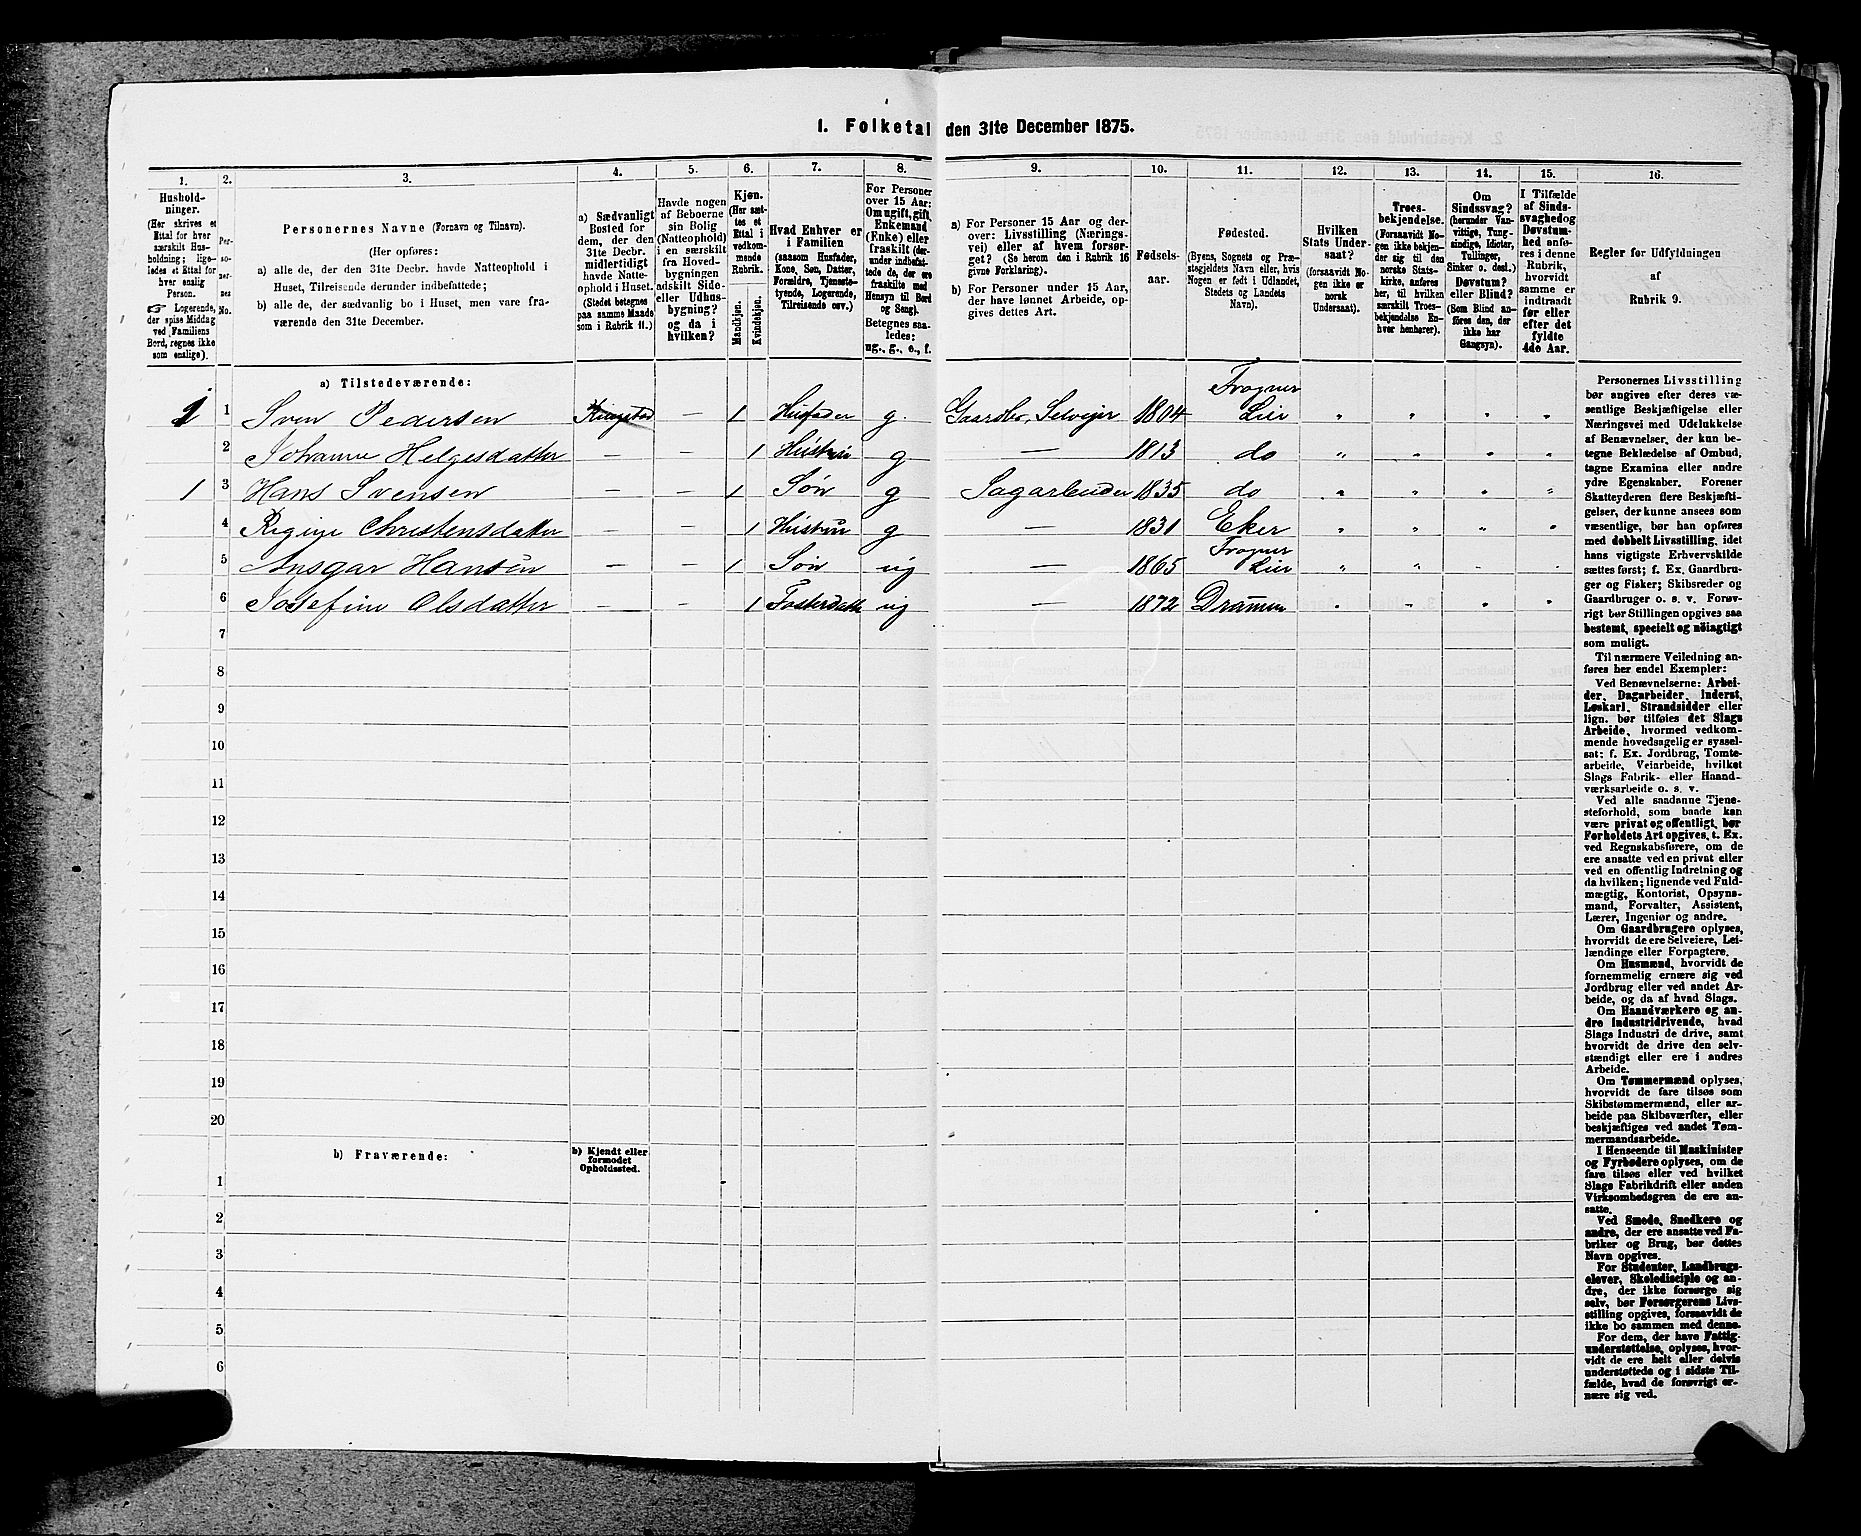 1. Folketal den 31te December 1875.
1. 2. 3. 4. 5. 6. 7. 8. 9. 10. 11. 12. 13. 14. 15. 16.
Hushold-
ninger.
(Her skrives et
Ettal for hver
særskilt Hus-
holdning; lige-
ledes et Ettal for
hver enslig
Person.
☞ Logerende,
der spise Middag
ved Familiens
Bord, regnes ikke
som enslige).
Per-
so-
ner-
nes
No.
Personernes Navne (Fornavn og Tilnavn).
(Her opføres:
a) alle de, der den 31te Decbr. havde Natteophold i
Huset, Tilreisende derunder indbefattede;
b) alle de, der sædvanlig bo i Huset, men vare fra-
værende den 31te December.
a) Sædvanligt
Bosted for
dem, der den
31te Decbr.
midlertidigt
havde Natte-
ophold i Huset.
(Stedet betegnes
paa samme Maade
som i Rubrik 11.)
Havde nogen
af Beboerne
sin Bolig
(Natteophold)
i en særskilt
fra Hoved-
bygningen
adskilt Side-
eller Udhus-
bygning?
og da i
hvilken?
Kjøn.
(Her sæt-
tes et
Ettal i
vedkom-
mende
Rubrik.
Mandkjøn.
Kvindekjøn.
Hvad Enhver er
i Familien
(saasom Husfader,
Kone, Søn, Datter,
Forældre, Tjeneste-
tyende, Logerende,
Tilreisende osv.)
For Personer
over 15 Aar:
Om ugift, gift,
Enkemand
(Enke) eller
fraskilt (der-
under indbefat-
tede de, der ere
fraskilte med
Hensyn til Bord
og Seng).
Betegnes saa-
ledes:
ug., g., e., f.
a) For Personer 15 Aar og der-
over: Livsstilling (Nærings-
vei) eller af hvem forsør-
get? (Se herom den i Rubrik 16
givne Forklaring).
b) For Personer under 15 Aar,
der have lønnet Arbeide, op-
gives dettes Art.
Fødsels-
aar.
Fødested.
(Byens, Sognets og Præ-
stegjeldets Navn eller, hvis
Nogen er født i Udlandet,
Stedets og Landets
Navn).
Hvilken
Stats Under-
saat?
(forsaavidt No-
gen ikke er
norsk
Undersaat).
Troes-
bekjendelse.
(Forsaavidt No-
gen ikke bekjen-
der sig til den
norske Stats-
kirke, anføres
her, til hvilken
særskilt Troes-
bekjendelse En-
hver henhører).
Om
Sindssvag?
(herunder Van-
vittige, Tung-
sindige, Idioter,
Tullinger,
Sinker o. desl.)
Døvstum?
eller Blind?
(Som Blind an-
føres den, der
ikke har
Gangsyn).
I Tilfælde
af Sinds-
svaghed og
Døvstum-
hed anfø-
res i denne
Rubrik,
hvorvidt
samme er
indtraadt
før eller
efter det
fyldte
4de Aar.
Regler for Udfyldningen
af
Rubrik 9.
a) Tilstedeværende:
Frogner
1 1 Sven Pedersen — 1 Husfader g. Gaardbr, Selveier 1804 Lier " " " "
2 Johanne Helgesdatter — — 1 Hustru g — 1813 do " " " "
1 3 Hans Svensen — — 1 Søn g Sagarbeider 1835 do " " " "
4 Regine Christensdatter — — 1 Hustru g — 1831 Eker " " " "
Frogner
5 Ansgar Hansen — — 1 Søn ug — 1865 Lier " " " "
6 Josefine Olsdatter — — 1 Fosterdatt ug — 1872 Drammen " " " "
7
8
9
10
11
12
13
14
15
16
17
18
19
20
b) Fraværende:
b) Kjendt eller
formodet
Opholdssted.
1
2
3
4
5
6
Personernes Livsstilling
bør angives efter deres væ-
sentlige Beskjæftigelse eller
Næringsvei med Udelukkelse
af Benævnelser, der kun be-
tegne Beklædelse af Ombud,
tagne Examina eller andre
ydre Egenskaber. Forener
Skatteyderen flere Beskjæfti-
gelser, der kunne ansees som
væsentlige, bør han opføres
med dobbelt Livsstilling, idet
hans vigtigste Erhvervskilde
sættes først; f. Ex. Gaardbru-
ger og Fisker; Skibsreder og
Gaardbruger o. s. v. Forøv-
rigt bør Stillingen opgives saa
bestemt, specielt og nøiagtigt
som muligt.
Til nærmere Veiledning an-
føres her endel Exempler:
Ved Benævnelserne: Arbei-
der, Dagarbeider, Inderst,
Løskarl, Strandsidder eller
lign. bør tilføies det Slags
Arbeide, hvormed vedkom-
mende hovedsagelig er syssel-
sat; f. Ex. Jordbrug, Tomte-
arbeide, Veiarbeide, hvilket
Slags Fabrik- eller Haand-
værksarbeide o. s. v.
Ved alle saadanne Tjene-
steforhold, som baade kan
være privat og offentligt, bør
Forholdets Art opgives, t. Ex.
ved Regnskabsførere, om de
ere ansatte ved en privat eller
ved en offentlig Indretning og
da hvilken; lignende ved Fuld-
mægtig, Kontorist, Opsyns-
mand, Forvalter, Assistent,
Lærer, Ingeniør og andre.
Om Gaardbrugere oplyses,
hvorvidt de ere Selveiere, Lei-
lændinge eller Forpagtere.
Om Husmænd, hvorvidt de
fornemmelig ernære sig ved
Jordbrug eller ved andet Ar-
beide, og da af hvad Slags.
Om Haandværkere og an-
dre Industridrivende, hvad
Slags Industri de drive, samt
hvorvidt de drive den selv-
stændigt eller ere i andres
Arbeide.
Om Tømmermænd oplyses,
hvorvidt de fare tilsøs som
Skibstømmermænd, eller ar-
beide paa Skibsværfter, eller
beskjæftiges ved andet Tøm-
mermandsarbeide.
I Henseende til Maskinister
og Fyrbødere oplyses, om de
fare tilsøs eller ved hvilket
Slags Fabrikdrift eller anden
Virksomhedsgren de ere an-
satte.
Ved Smede, Snedkere og
andre, der ere ansatte ved Fa-
briker og Brug, bør dettes
Navn opgives.
For Studenter, Landbrugs-
elever, Skoledisciple og an-
dre, der ikke forsørge sig
selv, bør Forsørgerens Livs-
stilling opgives, forsaavidt de
ikke bo sammen med denne.
For dem, der have Fattig-
understøttelse, oplyses, hvor-
vidt de ere helt eller delvis
understøttede og i sidste Til-
fælde, hvad de forøvrigt er-
nære sig ved.